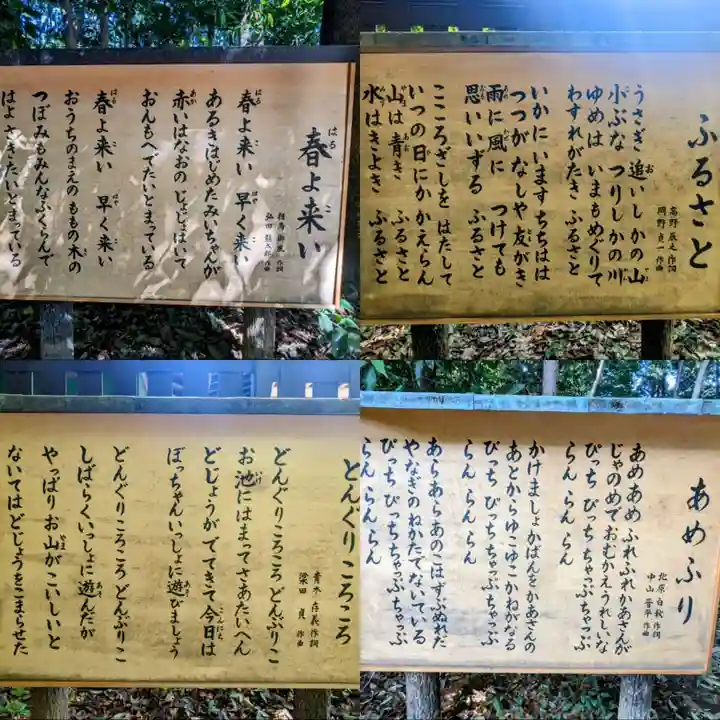 春よ来い
はる こ
相馬 御風 作詞
弘田 龍太郎 作曲
春よ来い 早く来い
はる こ はや こ
あるきはじめたみいちゃんが
赤いはなおの じょじょはいて
あか
おんもへでたいとまっている
春よ来い 早く来い
はる こ はや こ
おうちのまえの ももの木の
き
つぼみもみんなふくらんで
はよ さきたいとまっている
ふるさと
高野 辰之 作詞
岡野 貞一 作曲
うさぎ 追いしかの山
お やま
小ぶな つりしかの川
ゆめは いまもめぐりて
わすれがたき ふるさと
いかにいます ちちはは
つつがなしや 友がき
とも
雨に風に つけても
あめ かぜ
思いいずる ふるさと
おも
こころざしを はたして
いつの日にか かえらん
ひ
山は 青き ふるさと
やま あお
水はきよき ふるさと
みず
どんぐりころころ
青木 存義 作詞
梁田 貞 作曲
どんぐりころころ どんぶりこ
お池にはまって さあたいへん
いけ
どじょうが でてきて 今日は
こんにち
ぼっちゃんいっしょに 遊びましょう
あそ
どんぐりころころ どんぶりこ
しばらくいっしょに 遊んだが
あそ
やっぱり お山が こいしいと
やま
ないてはどじょうをこまらせた
あめふり
北原 白秋 作詞
中山 晋平 作曲
あめあめ ふれふれかあさんが
じゃのめで おむかえうれしいな
ぴっち ぴっち ちゃっぷ ちゃっぷ
らん らん らん
かけましょかばんをかあさんの
あとからゆこゆこかねがなる
ぴっち ぴっち ちゃっぷ ちゃっぷ
らん らん らん
あらあらあのこはずぶぬれだ
やなぎのねかたでないている
ぴっち ぴっち ちゃっぷ ちゃっぷ
らん らん らん